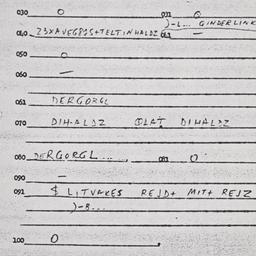 030 O 031 O
)-L... GINDERLINK
040 Z3XAVEGPIS+TELTINHALDZ 041 —
050 O
060 —
061 DERGORGL
070 DIH-ALDZ OLAT DIHALDZ
080 DERGORGL...., 081 O
090 —
091 $ LITVAKES REJD+ MIT+ REJZ
)-B...
100 O